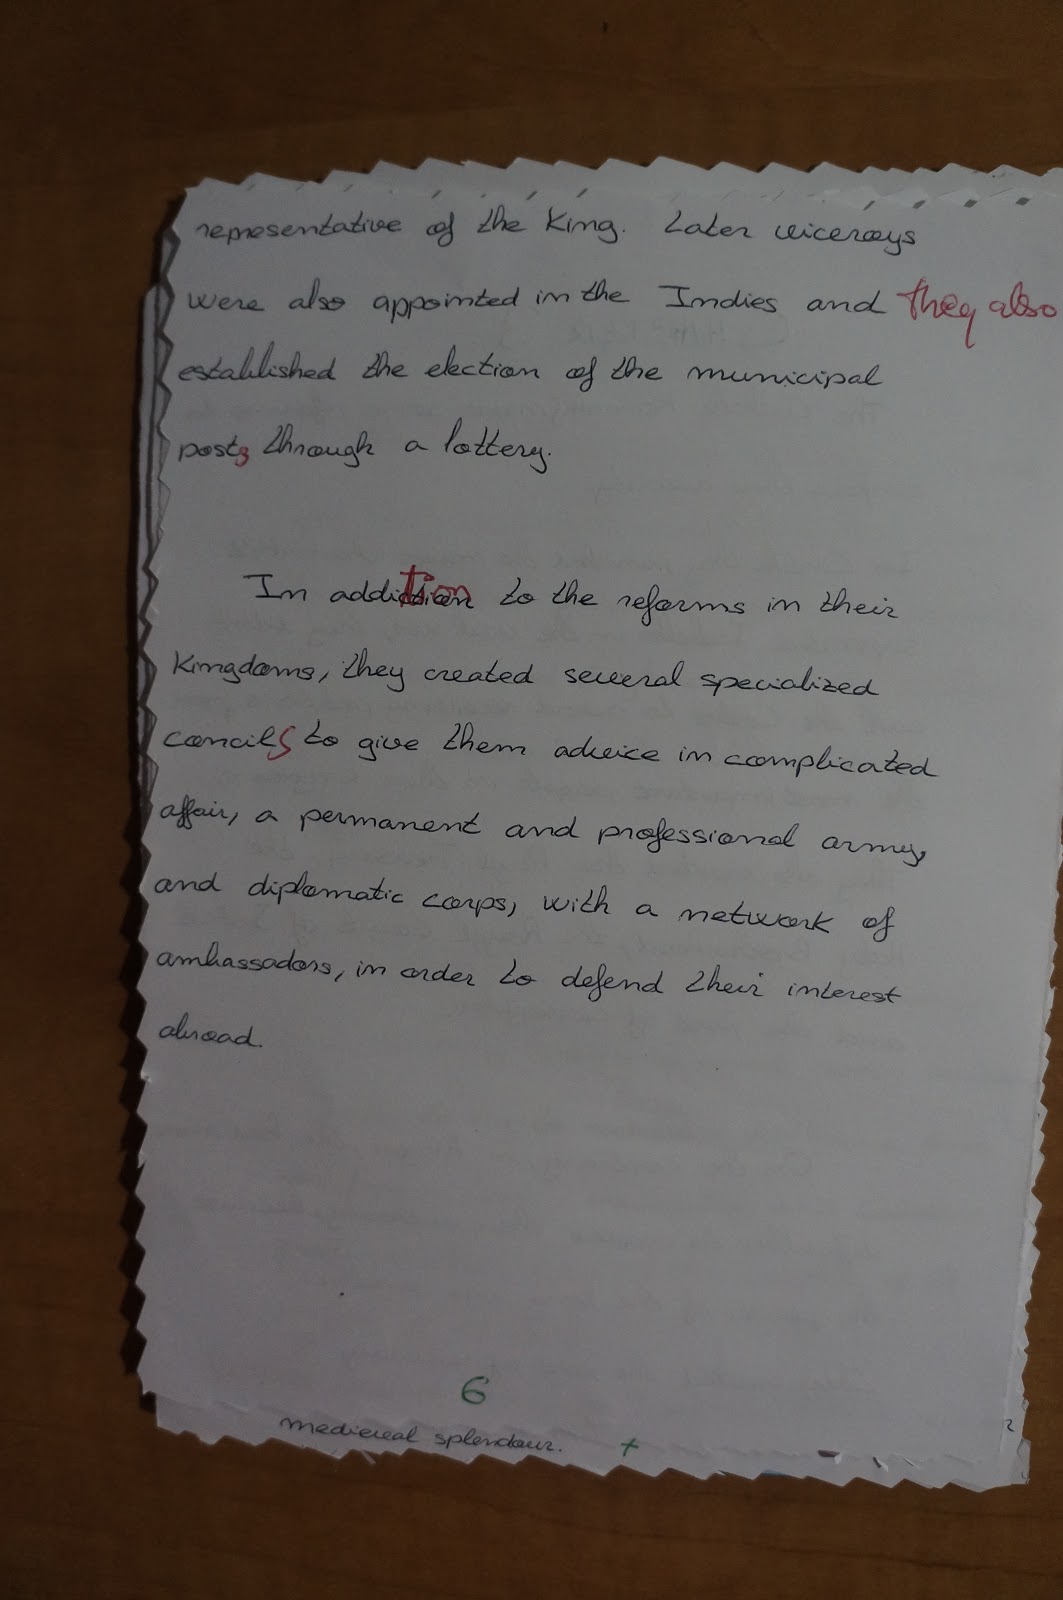 representative of the King. Later viceroys
were also appointed in the Indies and they also
established the election of the municipal
posts through a lottery.
In addition to the reforms in their
Kingdoms, they created several specialized
concils to give them advice in complicated
affair, a permanent and professional army,
and diplomatic corps, with a network of
ambassadors, in order to defend their interest
abroad.
6
medieval splendour. +
2